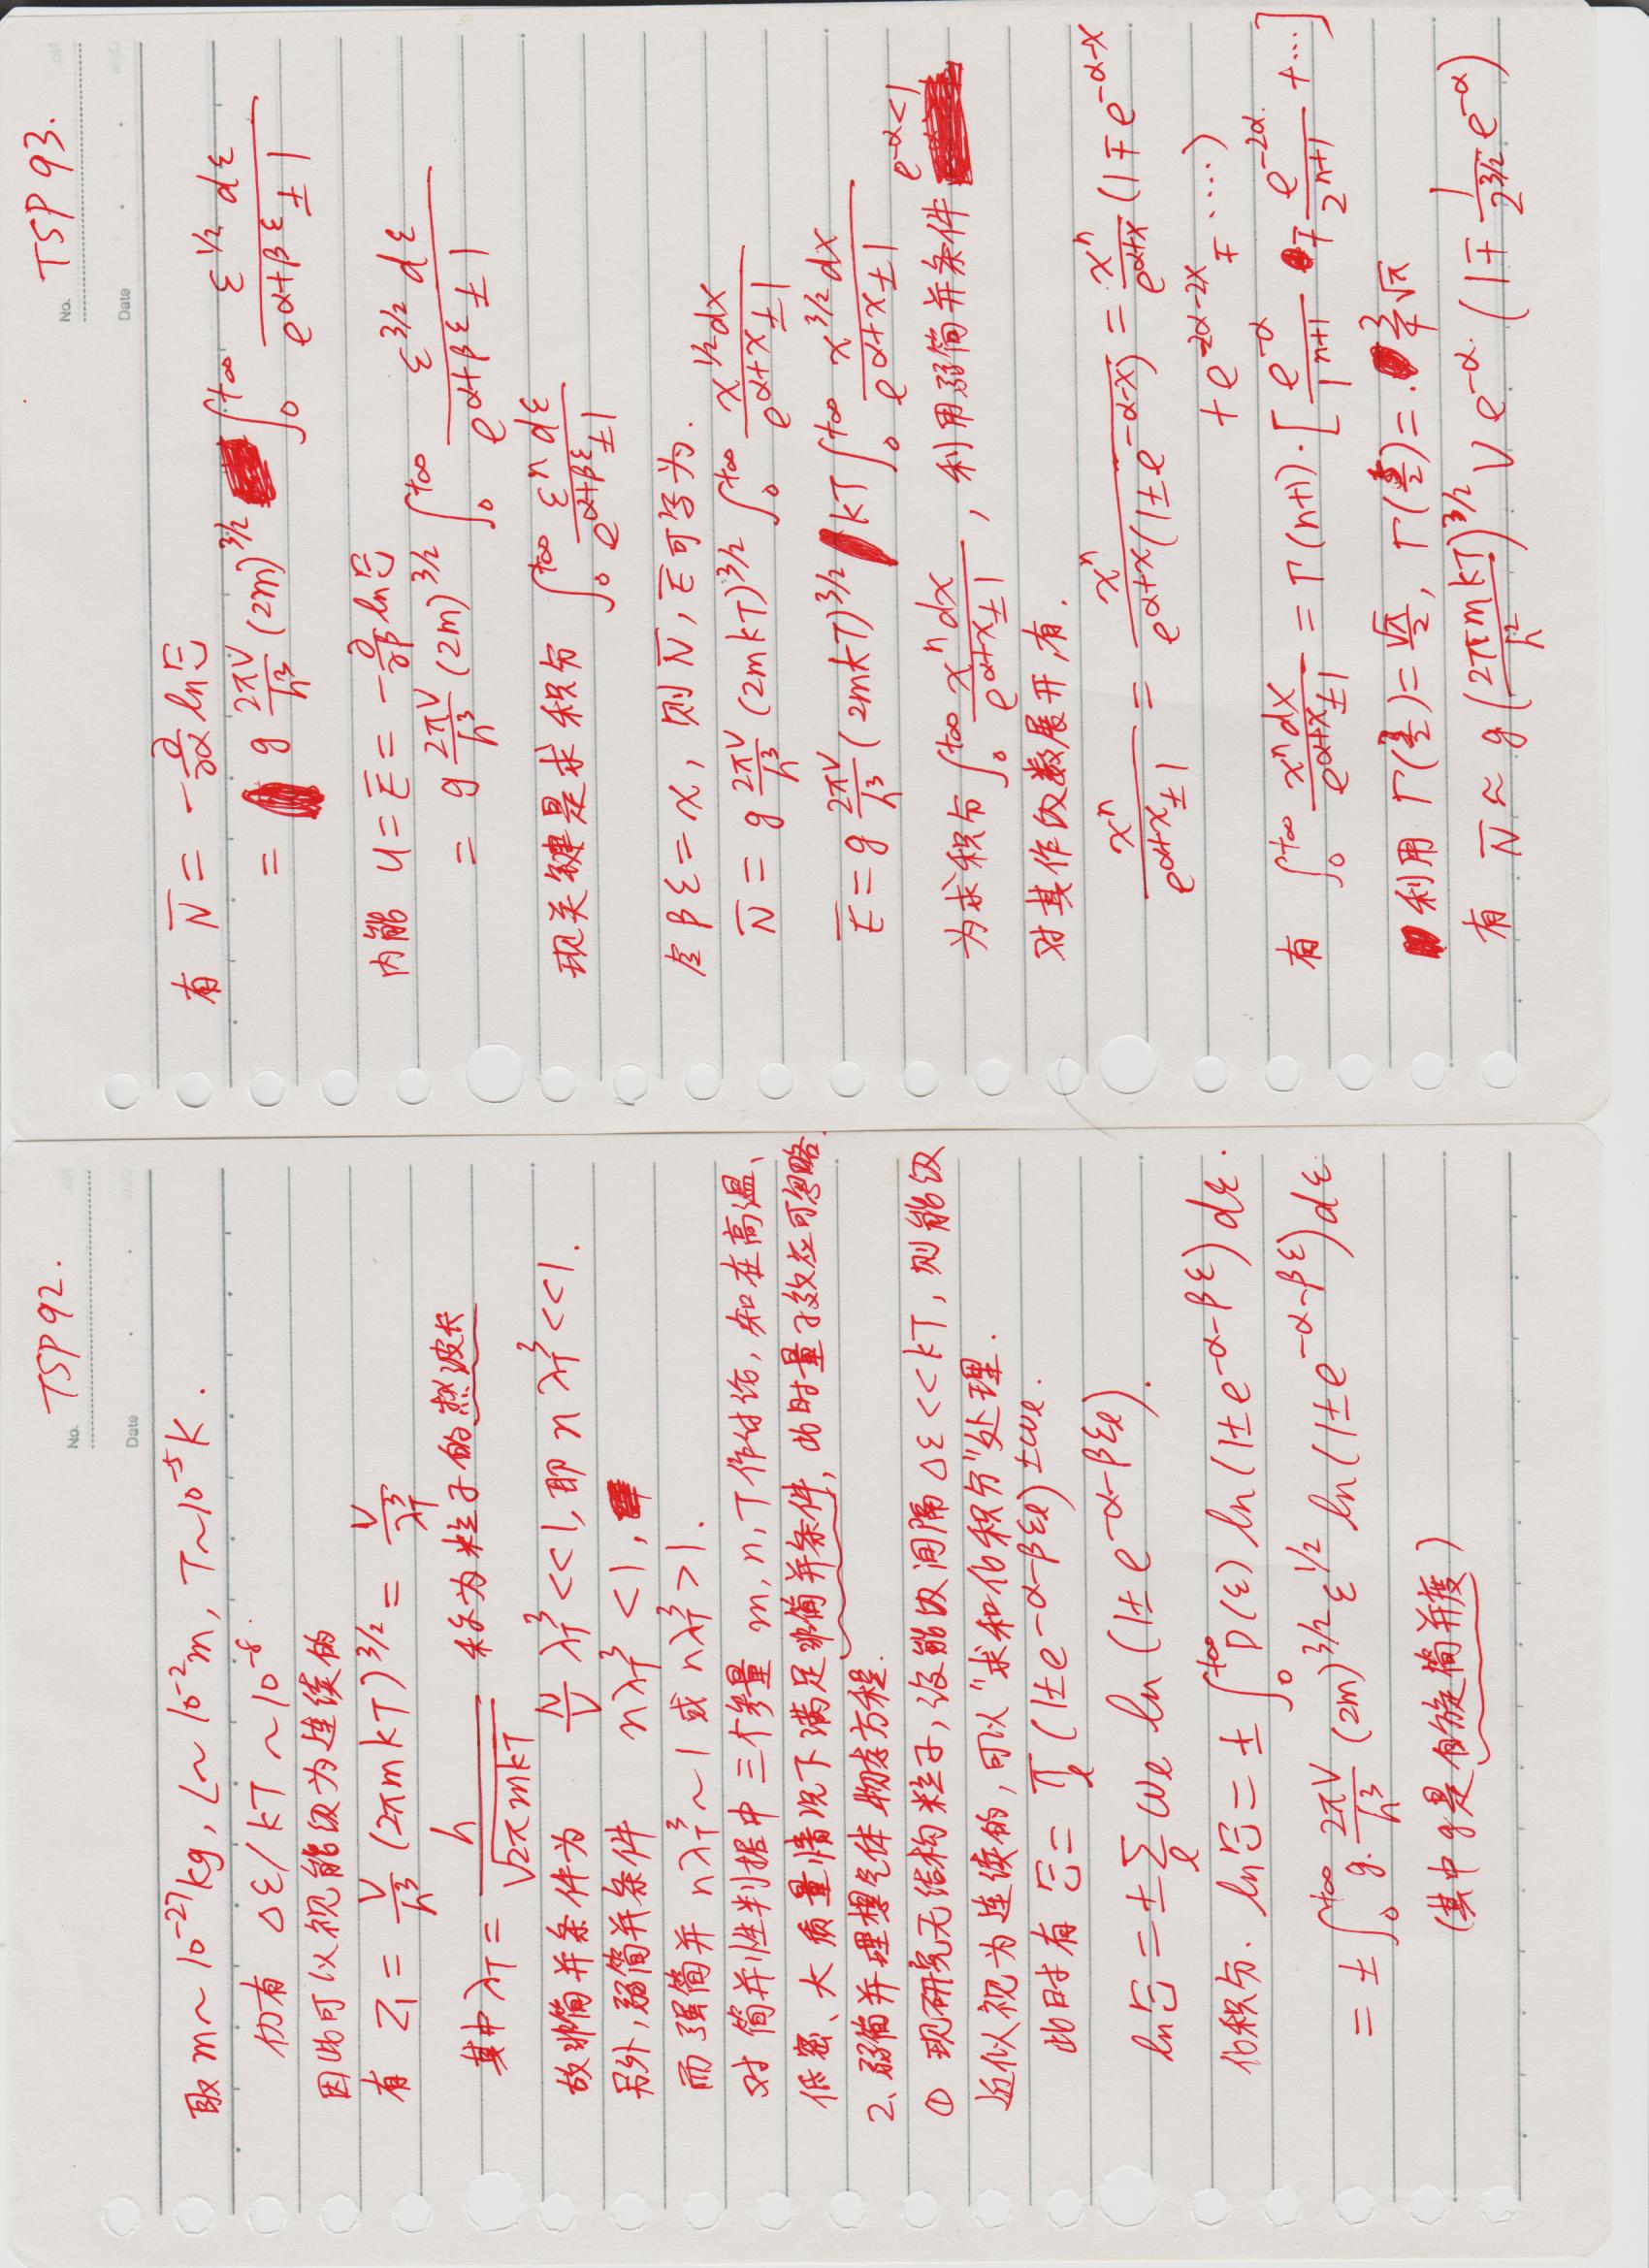 No. TSP 92.
Date
取 m～10⁻²⁷kg, L～10⁻²m, T～10⁻⁵K.
仍有 Δε/kT ～10⁻⁸.
因此可以视能级为连续的
有 Z₁ = V/h³ (2πmkT)^{3/2} = V/λ_T³
其中 λ_T = h/√(2πmkT) 称为粒子的热波长
故非简并条件为 N/V λ_T³ <<1, 即 n λ_T³ <<1.
另外, 弱简并条件 nλ_T³ <1,
而强简并 nλ_T³～1 或 nλ_T³ >1.
对简并性判据中三个参量 m, n, T作讨论, 知在高温、
低密、大质量情况下满足非简并条件, 此时量子效应可忽略.
2、弱简并理想气体物态方程.
① 现研究无结构粒子, 设能级间隔 Δε<<kT, 则能级
近似视为连续的, 可以"求和化积分"处理.
此时有 Ξ = ∏_l (1±e^{-α-βε_l})^{±ω_l}.
lnΞ = ±∑_l ω_l ln (1±e^{-α-βε_l}).
化积分. lnΞ = ± ∫_0^{+∞} D(ε) ln(1±e^{-α-βε}) dε.
= ± ∫_0^{+∞} g. 2πV/h³ (2m)^{3/2} ε^{1/2} ln(1±e^{-α-βε}) dε.
(其中g是自旋简并度)
No. TSP 93.
Date
有 N̄ = -∂/∂α lnΞ
= g 2πV/h³ (2m)^{3/2} ∫_0^{+∞} ε^{1/2} dε/(e^{α+βε}±1)
内能 U = Ē = -∂/∂β lnΞ
= g 2πV/h³ (2m)^{3/2} ∫_0^{+∞} ε^{3/2} dε/(e^{α+βε}±1)
现关键是求积分 ∫_0^{+∞} εⁿ dε/(e^{α+βε}±1)
令 βε=x, 则 N̄, Ē可写为.
N̄ = g 2πV/h³ (2mkT)^{3/2} ∫_0^{+∞} x^{1/2}dx/(e^{α+x}±1)
Ē = g 2πV/h³ (2mkT)^{3/2} kT ∫_0^{+∞} x^{3/2}dx/(e^{α+x}±1)
为求积分 ∫_0^{+∞} xⁿdx/(e^{α+x}±1), 利用弱简并条件 e^{-α}<1
对其作级数展开, 有.
xⁿ/(e^{α+x}±1) = xⁿ/(e^{α+x}(1±e^{-α-x})) = xⁿ/e^{α+x} (1∓e^{-α-x}
+e^{-2α-2x}∓····)
有 ∫_0^{+∞} xⁿdx/(e^{α+x}±1) = Γ(n+1)·[e^{-α}/1^{n+1} ∓ e^{-2α}/2^{n+1} +···]
利用 Γ(3/2)=√π/2, Γ(5/2)=3/4 √π
有 N̄ ≈ g (2πmkT/h²)^{3/2} V e^{-α}. (1∓ 1/2^{3/2} e^{-α})